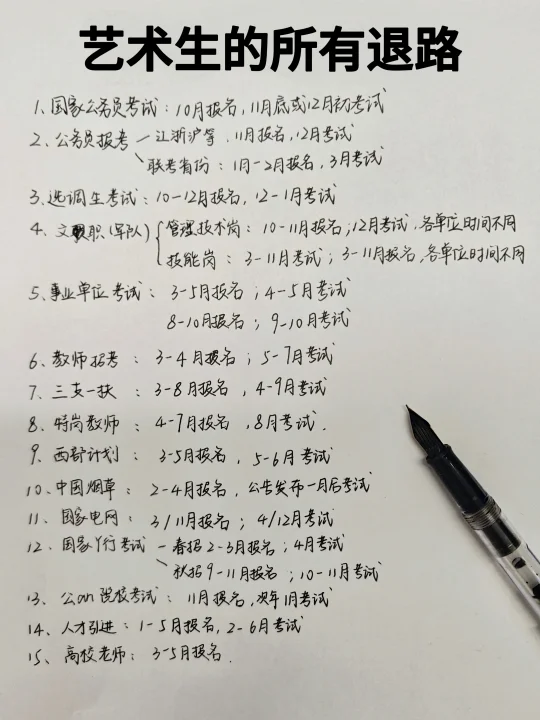 艺术生的所有退路
1.国家公务员考试：10月报名，11月底或12月初考试
2.公务员报考 — 江浙沪等.11月报名,12月考试
联考省份：1月-2月报名，3月考试
3.选调生考试：10-12月报名，12-1月考试
4、文职(军队) 管理技术岗：10-11月报名；12月考试，各单位时间不同
技能岗：3-11月考试；3-11月报名，各单位时间不同
5、事业单位考试：3-5月报名；4-5月考试
8-10月报名；9-10月考试
6、教师招考：3-4月报名；5-7月考试
7、三支一扶：3-8月报名，4-9月考试
8、特岗教师：4-7月报名，8月考试.
9、西部计划：3-5月报名，5-6月考试
10、中国烟草：2-4月报名，公告发布一月后考试
11、国家电网：3/11月报名；4/12月考试
12、国家丫行考试 — 春招2-3月报名；4月考试
秋招9-11月报名；10-11月考试
13、公an院校考试：11月报名,次年1月考试
14、人才引进：1-5月报名,2-6月考试
15、高校老师：3-5月报名.